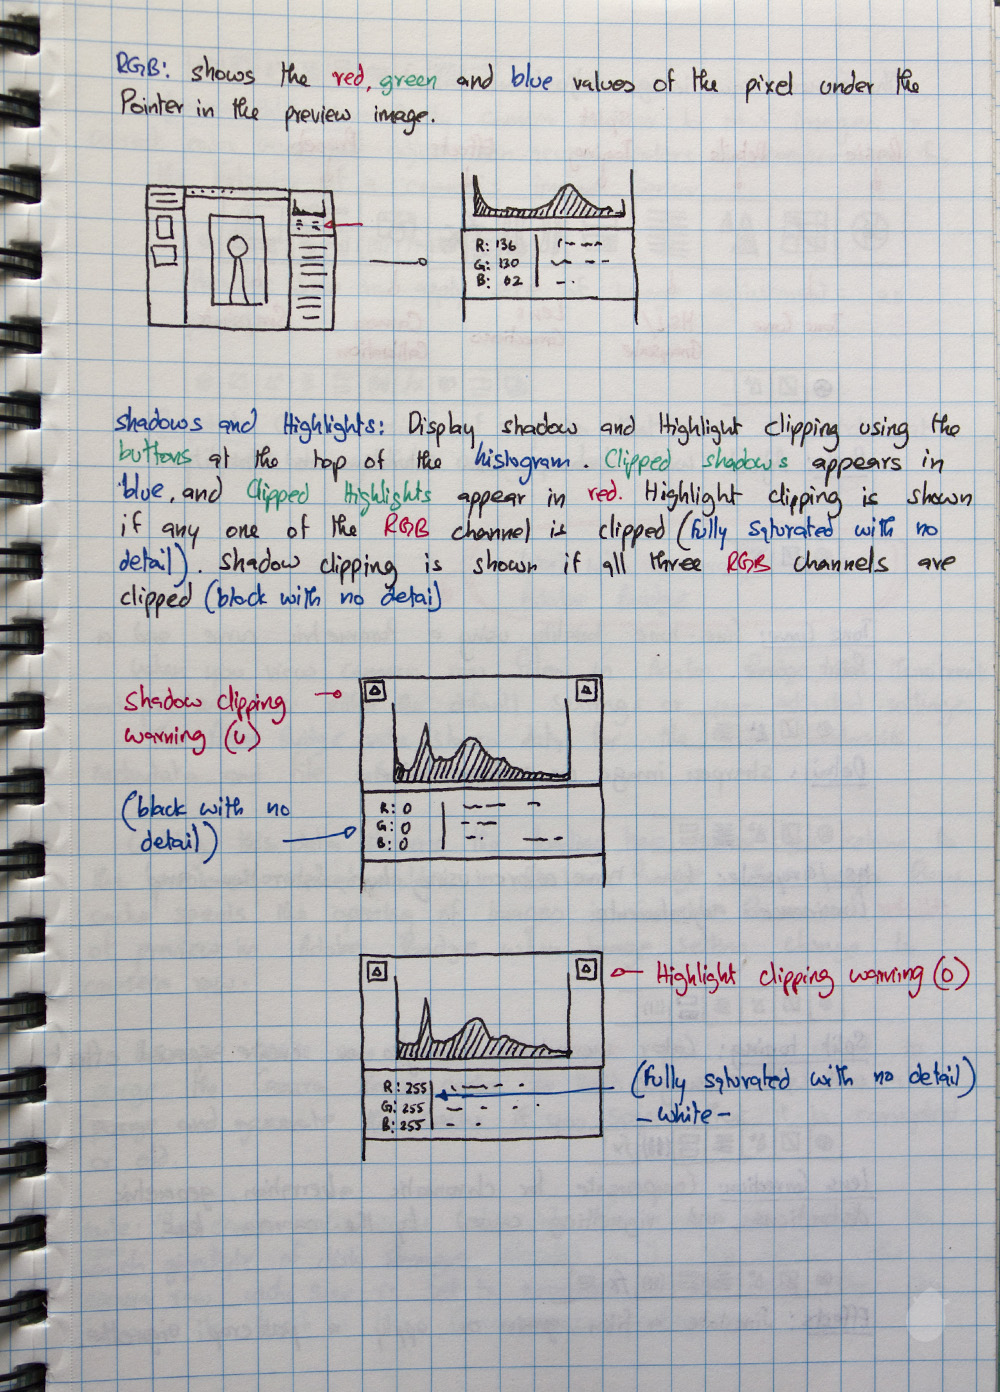 RGB: shows the red, green and blue values of the pixel under the
Pointer in the preview image.
R: 136
G: 130
B: 62
shadows and Highlights: Display shadow and Highlight clipping using the
buttons at the top of the histogram. Clipped shadows appears in
blue, and Clipped Highlights appear in red. Highlight clipping is shown
if any one of the RGB channel is clipped (fully saturated with no
detail). Shadow clipping is shown if all three RGB channels are
clipped (black with no detail)
Shadow clipping
warning (U)
(black with no
detail)
R: 0
G: 0
B: 0
Highlight clipping warning (O)
R: 255
G: 255
B: 255
(fully saturated with no detail)
- white -